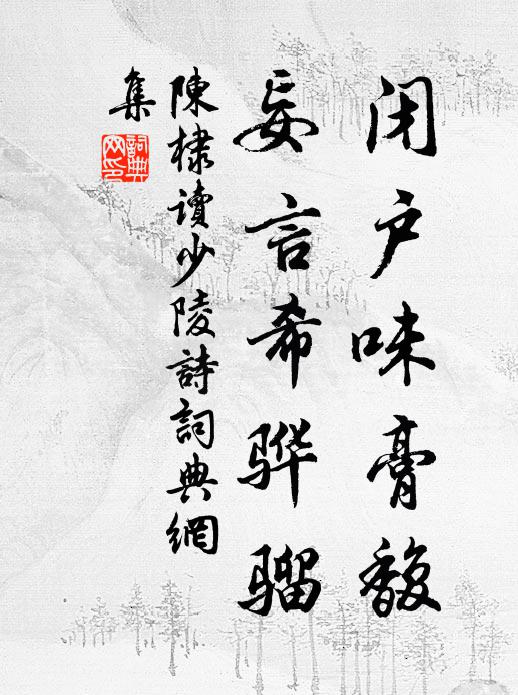 闭户味膏馥
妄言希骅骝
陳棣讀少陵詩詞典網
集
詞典網印